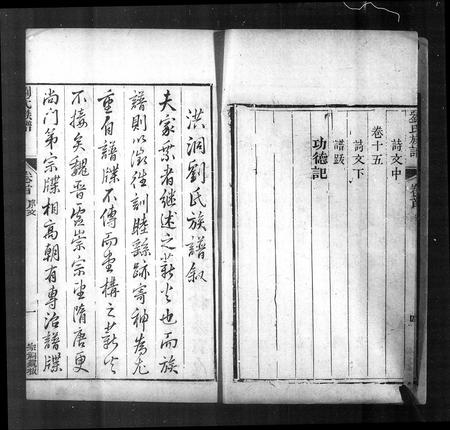 劉氏族譜 卷首 四
詩文中
卷十五
詩文下
譜跋
功德記
洪洞劉氏族譜叙
夫家業者繼述之薪火也而族
譜則以徵往訓睦繇跡寄神為尤
重自譜牒不傳而堂構之薪火
不接矣魏晉崇宗望隋唐更
尚門第宗牒相高朝有專治譜牒
劉氏族譜 卷首 序文 一